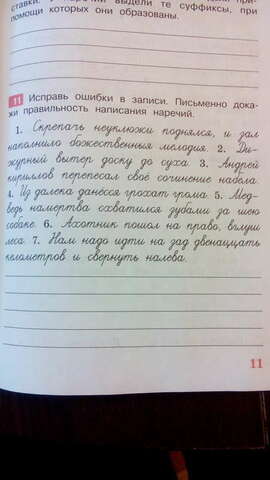 ставки. У наречий выдели те суффиксы, при
помощи которых они образованы.
11 Исправь ошибки в записи. Письменно дока-
жи правильность написания наречий.
1. Скрепачь неуклюжи поднялся, и зал
наполнило божественныя мелодия. 2. Ди-
журный вытер доску до суха. 3. Андрей
кириллов перепесал своё сочинение набела.
4. Из далека данёсся грохат грома. 5. Мед-
ведь намертва схватился зубами за шею
собаке. 6. Ахотник пошол на право, вглуш
леса. 7. Нам надо идти на зад двенаццать
келометров и свернуть налева.
11